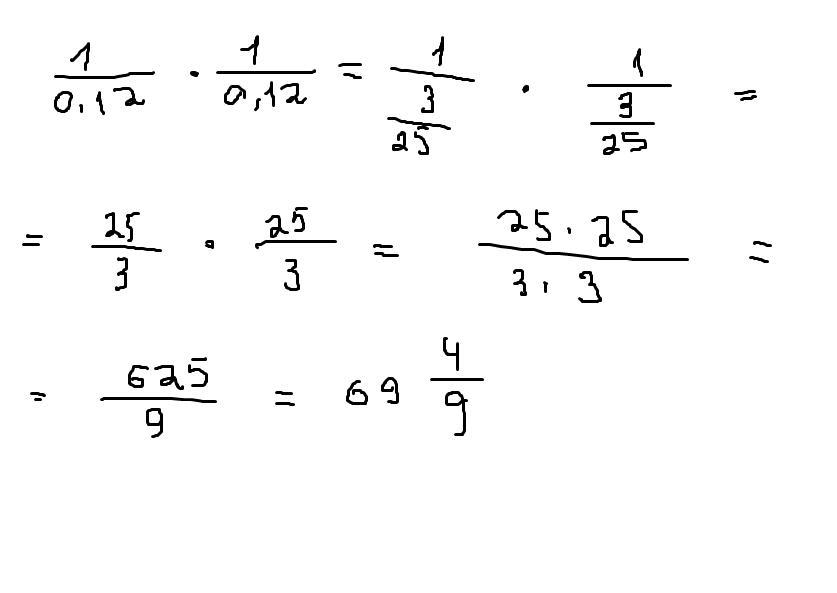 1/0,12 · 1/0,12 = 1/(3/25) · 1/(3/25) =
= 25/3 · 25/3 = 25·25/3·3 =
= 625/9 = 69 4/9